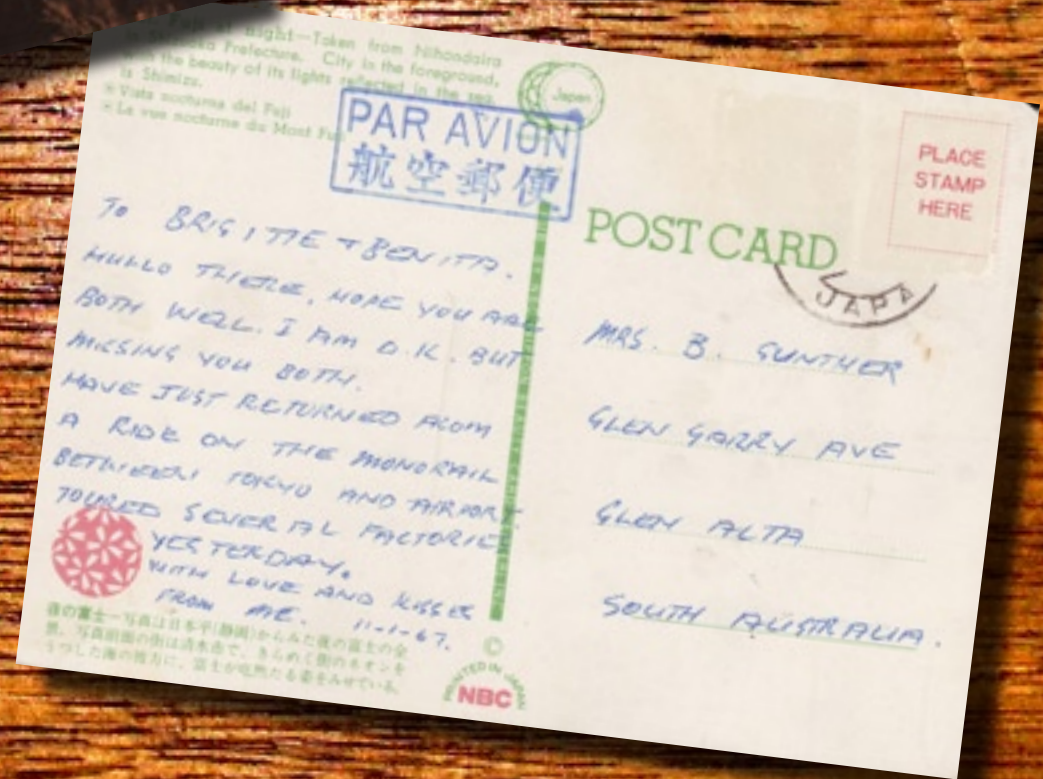 Night—Taken from Nihondaira
Prefecture. City in the foreground,
the beauty of its lights reflected in the sea,
is Shimizu.
Vista nocturna del Fuji
La vue nocturne du Mont Fuji
Japan
PAR AVION
航空郵便
PLACE
STAMP
HERE
POST CARD
JAPA
TO BRIGITTE & BENITA.
HULLO THERE, HOPE YOU ARE
BOTH WELL. I AM O.K. BUT
MISSING YOU BOTH.
HAVE JUST RETURNED FROM
A RIDE ON THE MONORAIL
BETWEEN TOKYO AND AIRPORT.
TOURED SEVERAL FACTORIES
YESTERDAY.
WITH LOVE AND KISSES
FROM ME. 11-1-67.
MRS. B. GUNTHER
GLEN GARRY AVE
GLEN ALTA
SOUTH AUSTRALIA.
夜の富士—写真は日本平(静岡)からみた夜の富士の全
景。写真前面の街は清水市で、きらめく街のネオンを
うつした海の彼方に、富士が屹然たる姿をみせている。
©
PRINTED IN JAPAN
NBC